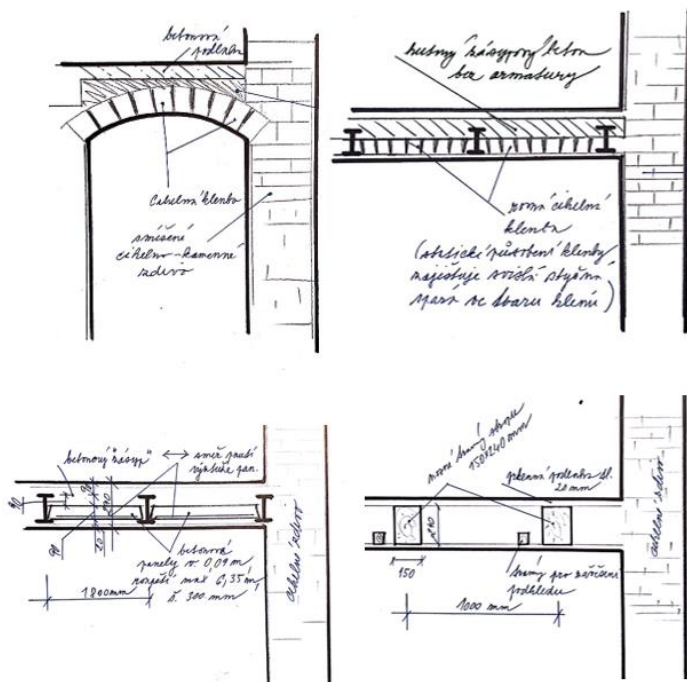 betonová
podlaha
cihelná klenba
smíšené
cihelno-kamenné
zdivo
hutný zásypový beton
bez armatury
rovná cihelná
klenba
(statické působení klenby
zajišťuje svislá styčná
spára ve tvaru klínu)
betonový "zásyp"
směr pnutí
výztuže pan.
90
240
90
50
betonové
panely v. 0,09 m
rozpětí max 6,35 m,
š. 300 mm
1800mm
cihelné zdivo
nosné trámy stropu
150x240 mm
prkenná podlaha tl.
20 mm
240
150
trámy pro zavěšení
podhledu
1000 mm
cihelné zdivo